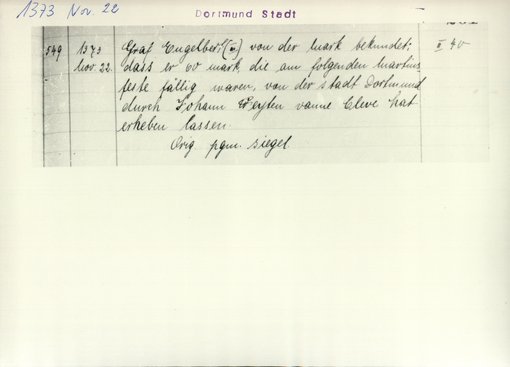 1373 Nov. 22
Dortmund Stadt
549 1373 Graf Engelbert von der Mark bekundet, II 40
Nov. 22. dass er 60 mark die am folgenden Martins
feste fällig waren, von der Stadt Dortmund
durch Johann Weyten vanme Cleve hat
erheben lassen
Orig pgm. Siegel.